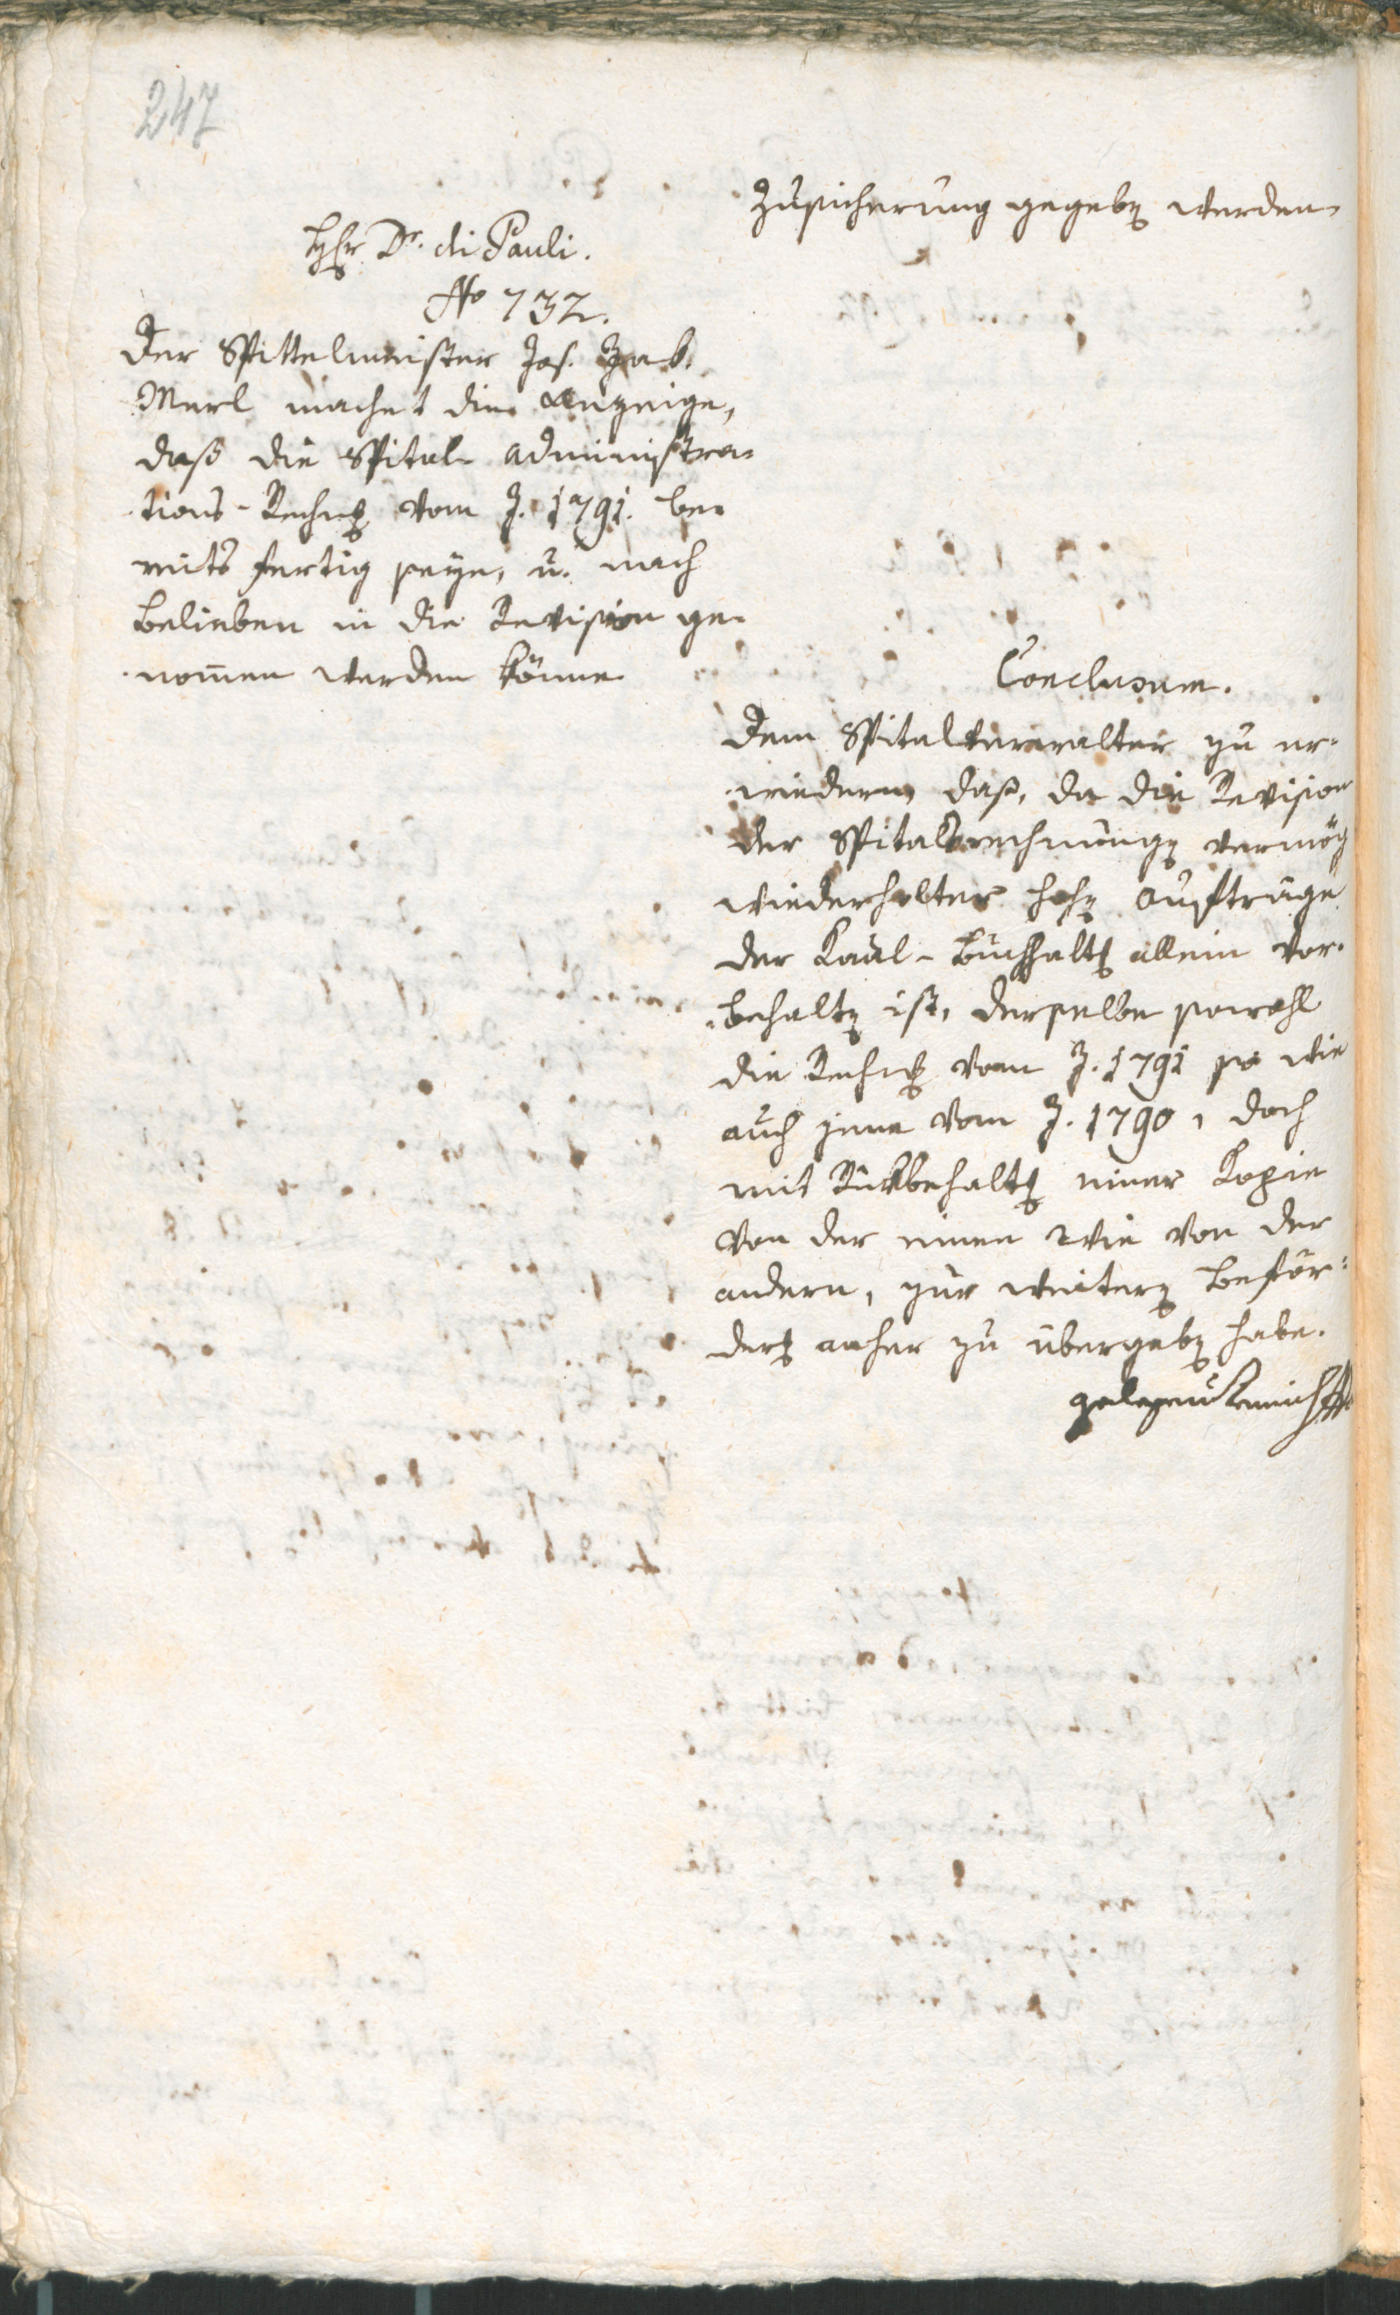 247
Zusicherung gegeben werden.
Hr. Dr. di Pauli.
No 732.
Der Spittelmeister Jos. Jak.
Merl machet die Anzeige,
daß die Spital-Administra-
tions-Rechng vom J. 1791. be-
reits fertig seye, u. nach
Belieben in die Revision ge-
nom̄en werden könne.
Conclusum.
Dem Spitalverwalter zu er-
wiedern, daß, da die Revision
der Spitalsrechnungen vermög
wiederholter hohen Aufträge
der Kaal-Buchhaltg allein vor-
behalten ist, derselbe sowohl
die Rechng vom J. 1791 so wie
auch jene vom J. 1790, doch
mit Rückbehaltg einer Kopie
von der einen wie von der
andern, zur weitern Beför-
derg anher zu übergeben habe.